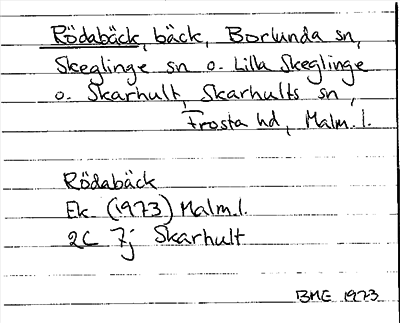 Rödabäck, bäck, Borlunda sn,
Skeglinge sn o. Lilla Skeglinge
o. Skarhult, Skarhults sn,
Frosta hd, Malm. l.
Rödabäck
Ek. (1973) Malm.l.
2C 7j Skarhult
BME 1973